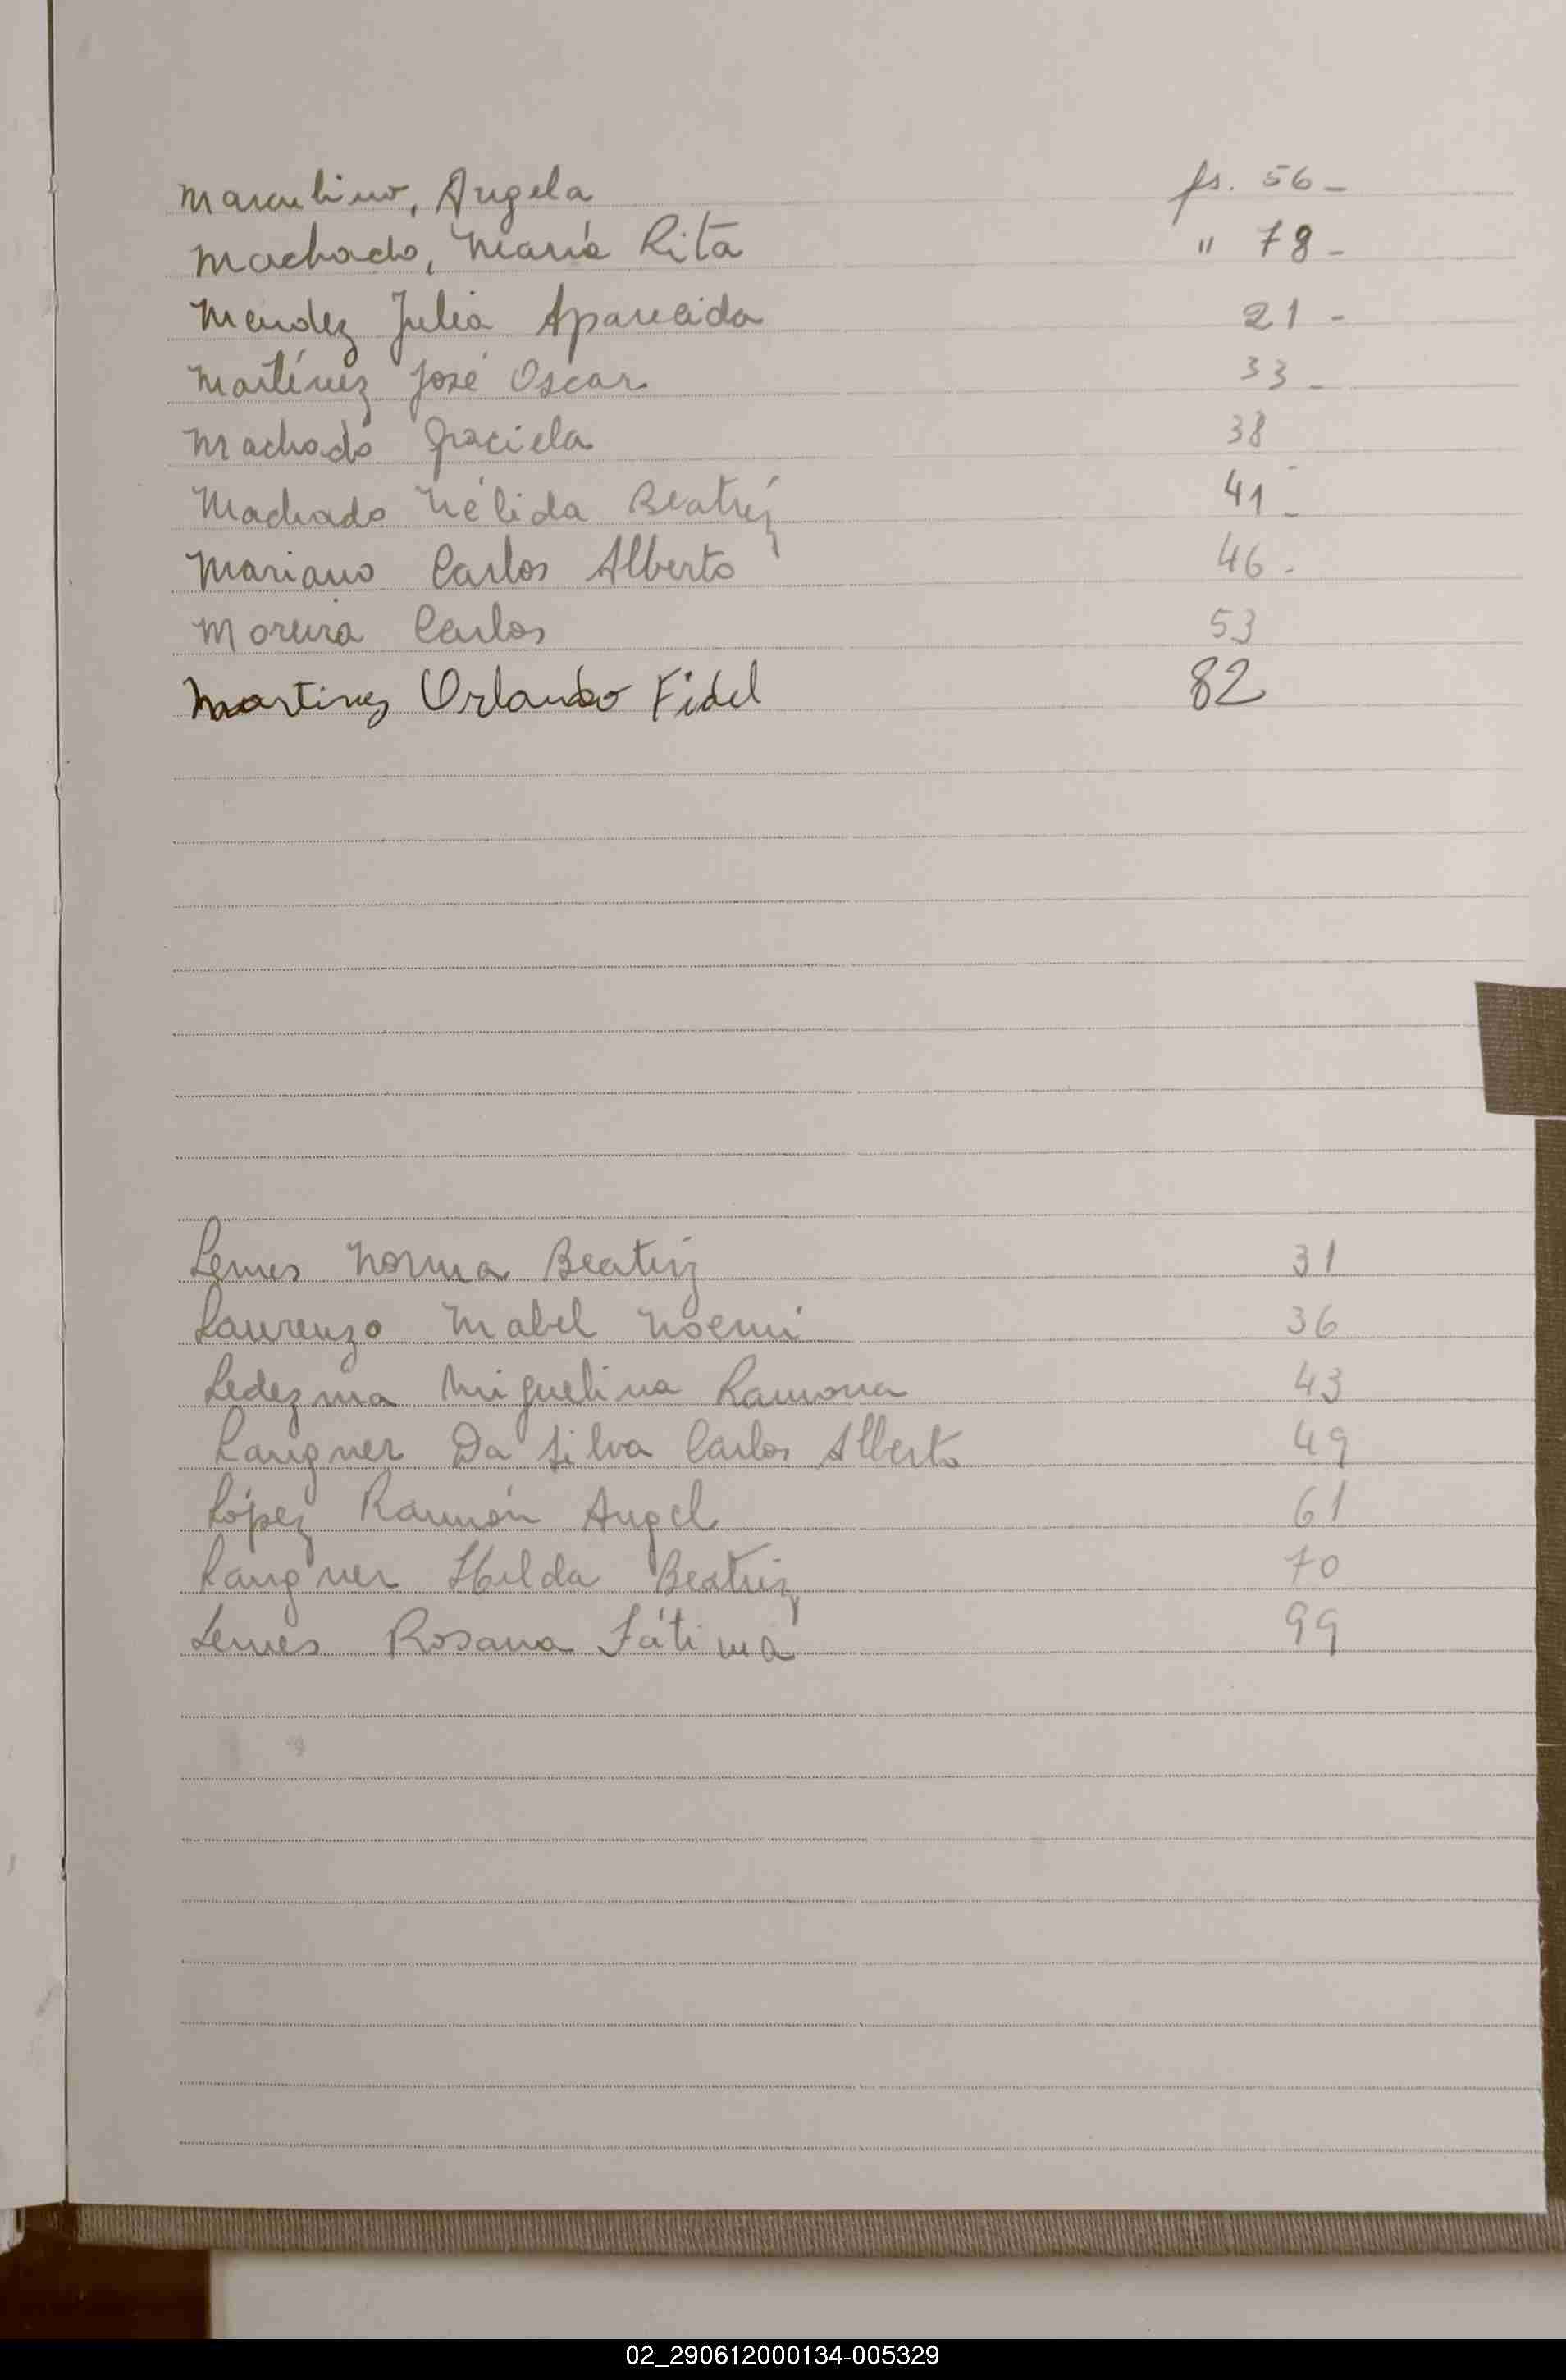 Marculino, Angela fs. 56-
Machado, María Rita " 78-
Mendez Julia Aparecida 21-
Martínez José Oscar 33-
Machado Graciela 38
Machado Nélida Beatríz 41-
Mariano Carlos Alberto 46-
Moreira Carlos 53
Martinez Orlando Fidel 82
Lemes Norma Beatriz 31
Laurenzo Mabel Noemi 36
Ledezma Miguelina Ramona 43
Langner Da Silva Carlos Alberto 49
López Ramón Angel 61
Langner Hilda Beatriz 70
Lemes Rosana Fátima 99
02_290612000134-005329